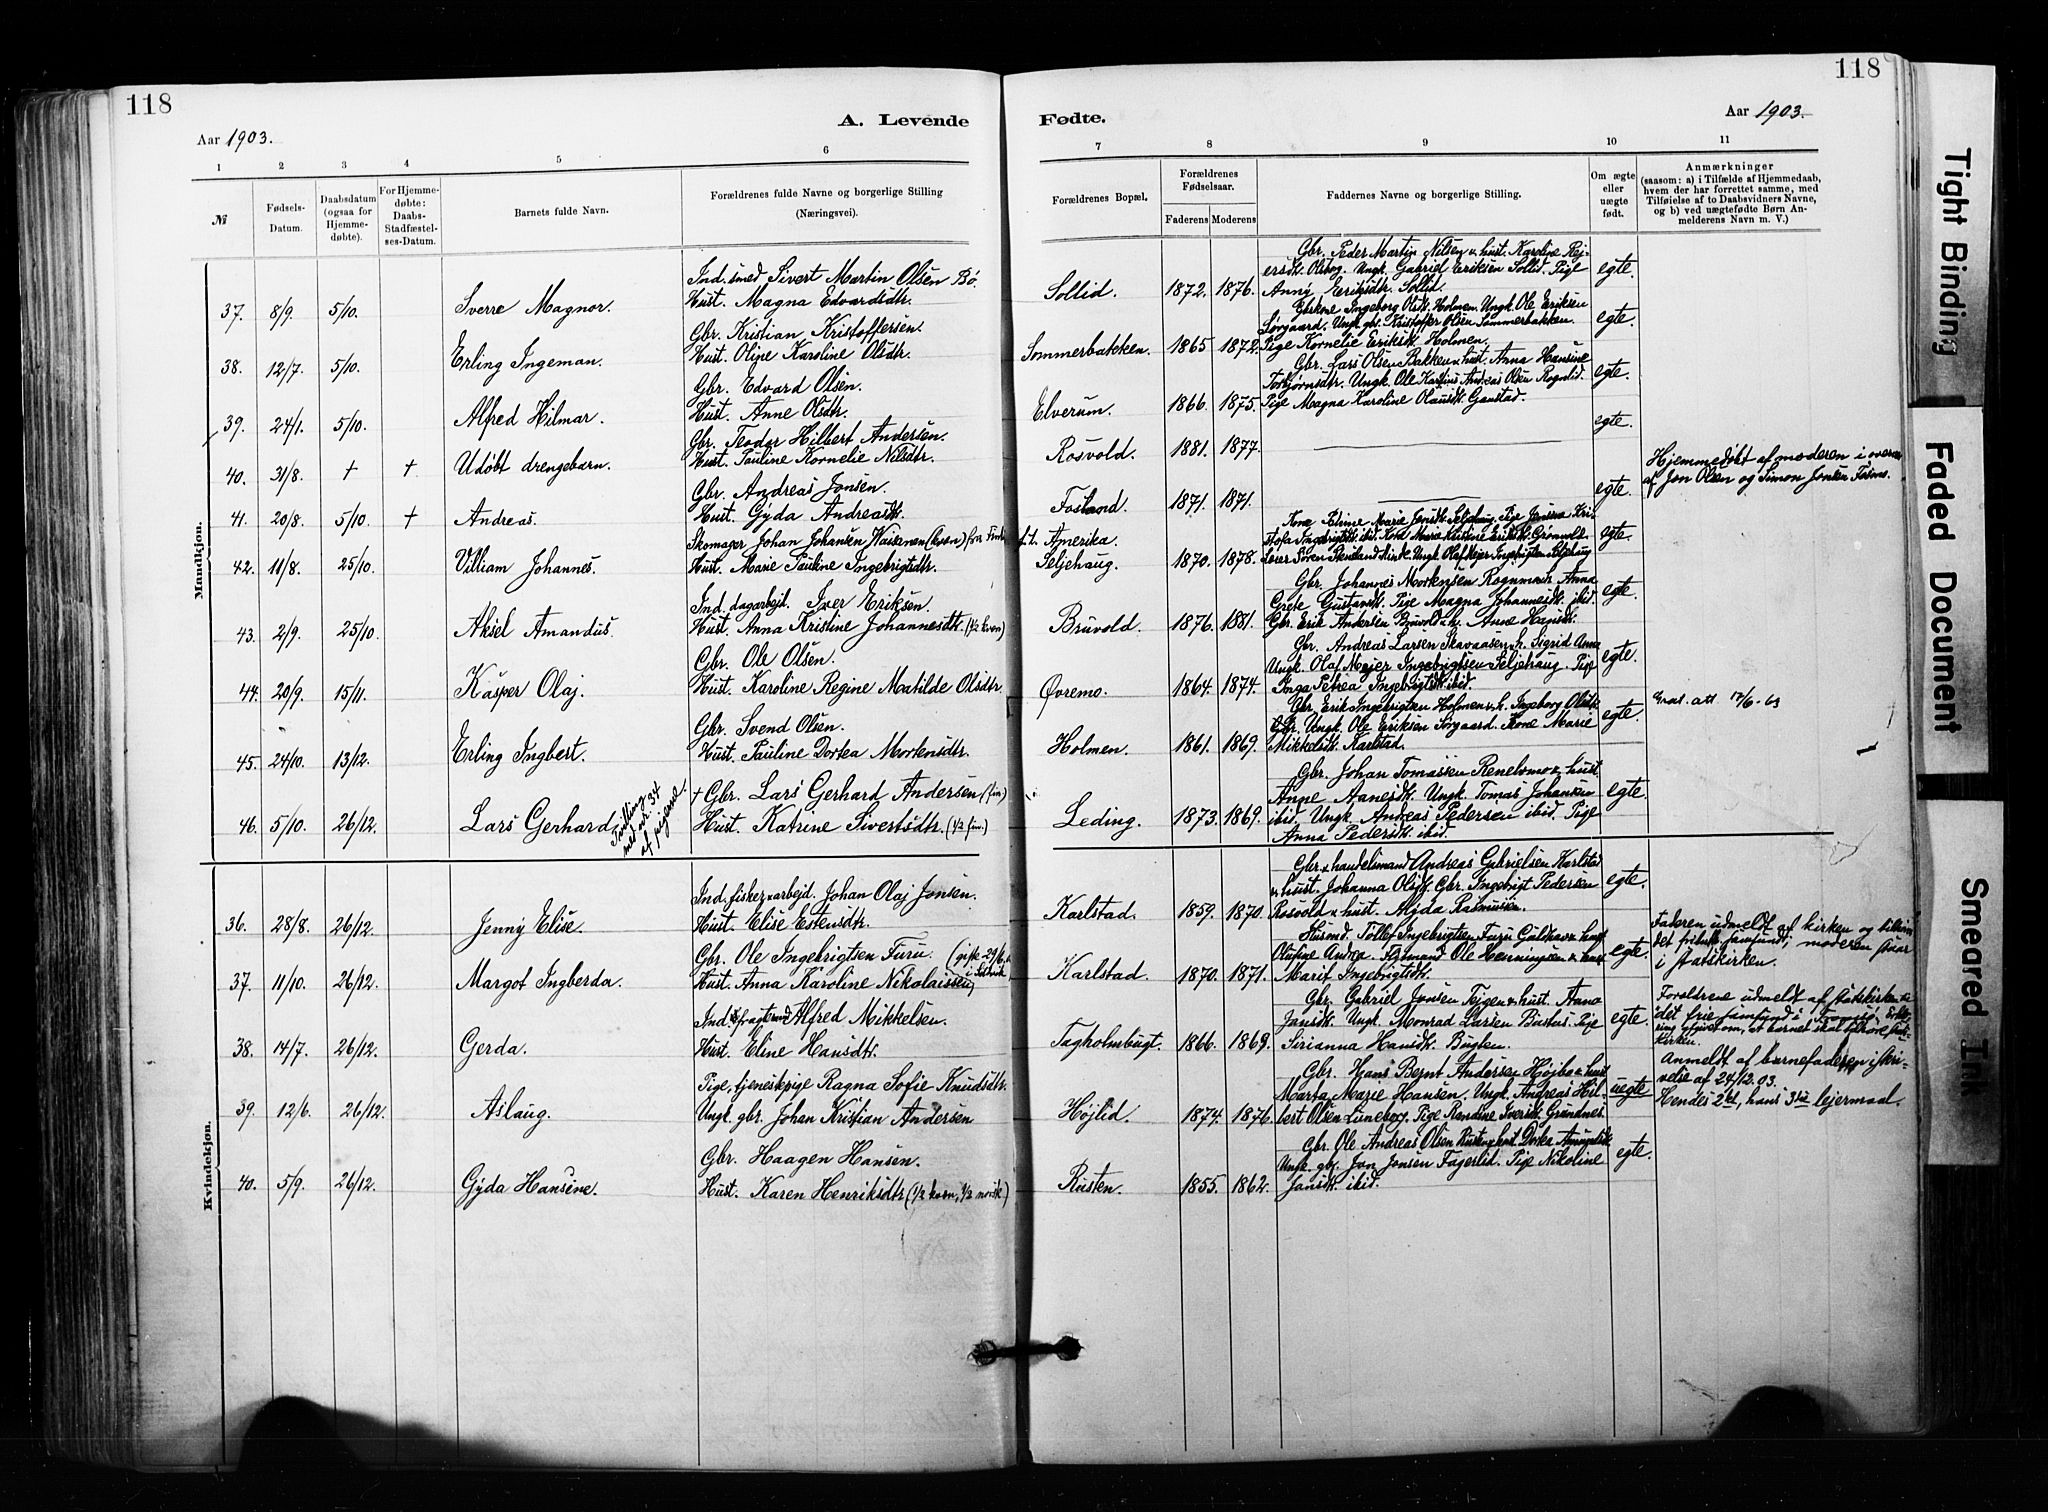 118
Aar 1903.
A. Levende
1 2 3 4 5 6
№
Fødsels-
Datum.
Daabsdatum
(ogsaa for
Hjemme-
døbte).
For Hjemme-
døbte:
Daabs-
Stadfæstel-
ses-Datum.
Barnets fulde Navn.
Forældrenes fulde Navne og borgerlige Stilling
(Næringsvei).
Mandkjøn.
Ind. smed Sivert Martin Olsen Bø.
37. 8/9. 5/10. Sverre Magnor. Hust. Magna Edvardsdtr.
Gbr. Kristian Kristoffersen.
38. 12/7. 5/10. Erling Ingeman. Hust. Oline Karoline Olsdtr.
Gbr. Edvard Olsen.
39. 24/1. 5/10. Alfred Hilmar. Hust. Anne Olsdtr.
Gbr. Teodor Hilbert Andersen.
40. 31/8. † † Udøbt drengebarn. Hust. Pauline Kornelie Nilsdtr.
Gbr. Andreas Jonsen.
41. 20/8. 5/10. † Andreas. Hust. Gyda Andreasdtr.
Skomager Johan Johansen (kven) fra
42. 11/8. 25/10. Villiam Johannes. Hust. Marie Pauline Ingebrigtsdtr.
Ind. dagarbejd. Iver Eriksen.
43. 2/9. 25/10. Aksel Amandus. Hust. Anna Kristine Johannesdtr. (1/2 kven)
Gbr. Ole Olsen.
44. 20/9. 15/11. Kasper Olaj. Hust. Karoline Regine Matilde Olsdtr.
Gbr. Svend Olsen.
45. 24/10. 13/12. Erling Ingbert. Hust. Pauline Dortea Mortensdtr.
† Gbr. Lars Gerhard Andersen (fin.)
46. 5/10. 26/12. Lars Gerhard Hust. Katrine Sivertsdtr. (1/2 fin.)
Tvilling
med nr. 34
af pigerne.
Kvindekjøn.
Ind. fisker & arbejd. Johan Olaj Jonsen.
36. 28/8. 26/12. Jenny Elise. Hust. Elise Estensdtr.
Gbr. Ole Ingebrigtsen Furu. (gifte 29/6
37. 11/10. 26/12. Margot Ingberda. Hust. Anna Karoline Nikolaissen
Ind. fragtmand Alfred Mikkelsen.
38. 14/7. 26/12. Gerda. Hust. Eline Hansdtr.
Pige, tjenestepige Ragna Sofie Knudsdtr.
39. 12/6. 26/12. Aslaug. Ungk. gbr. Johan Kristian Andersen
Gbr. Haagen Hansen.
40. 5/9. 26/12. Gyda Hansine. Hust. Karen Henriksdtr. (1/2 kven, 1/2 norsk)
118
Fødte.
Aar 1903.
7 8 9 10 11
Forældrenes Bopæl.
Forældrenes
Fødselsaar.
Faderens Moderens
Faddernes Navne og borgerlige Stilling.
Om ægte
eller
uægte
født.
Anmærkninger
(saasom: a) i Tilfælde af Hjemmedaab,
hvem der har forrettet samme, med
Tilføielse af to Daabsvidners Navne,
og b) ved uægtefødte Børn An-
melderens Navn m. V.)
Gbr. Peder Martin Nilsen & hust. Karoline Pej-
ersdtr. Olsborg. Ungk. Gabriel Eriksen Sollid. Pige
Sollid. 1872. 1876. Anny Eriksdtr. Sollid. egte.
Gbrkone Ingeborg Olsdtr. Holmen. Ungk. Ole Eriksen
Sørgaard. Ungk. gbr. Kristoffer Olsen Sommerbakken.
Sommerbakken. 1865 1872. Pige Kornelie Eriksdtr. Holmen. egte.
Gbr. Lars Olsen Bakken & hust. Anna Hansine
Torbjørnsdtr. Ungk. Ole Karelius Andreas Olsen Rognlid.
Elverum. 1866. 1875. Pige Magna Karoline Olausdtr. Grønstad. egte.
Rosvold. 1881. 1877. egte.
Fosland. 1871. 1871. egte.
Hjemmedøbt af moderen i overvær
af Jon Olsen og Simon Jonsen Fosmo.
f.t. Amerika.
Seljehaug. 1870. 1878. egte.
Gbr. Johannes Mortensen Rognmo & h. Anna
Grete Gustavsdtr. Pige Magna Johannesdtr. ibid.
Bruvold. 1876. 1881. Gbr. Erik Andersen Bruvold & h. Anne Hansdtr. egte.
Gbr. Andreas Larsen Skavaasen & h. Sigrid Anna
Ungk. Olaf Mejer Ingebrigtsen Seljehaug. Pige
Øvremo. 1864. 1874. Inga Petrea Ingebrigtsdtr. ibid. egte.
Gbr. Erik Ingebrigtsen Holmen & h. Ingeborg Olsdtr.
Ungk. Ole Eriksen Sørgaard. Kone Marie
Holmen. 1861. 1869. Mikkelsdtr. Karlstad. egte.
att. 17/6-63
Gbr. Johan Tomassen Renelvmo & hust.
Anne Aanesdtr. Ungk. Tomas Johansen
Leding. 1873. 1869. ibid. Ungk. Andreas Pedersen ibid. Pige
Anna Pedersdtr. ibid. egte.
Gbr. & handelsmand Andreas Gabrielsen Karlstad
& hust. Johanna Olsdtr. Gbr. Ingebrigt Pedersen
Karlstad. 1859. 1870. Rosvold & hust. Alida Rasmusen. egte.
Husmd. Tollef Ingebrigtsen Furu Guldhav & hust.
Olufine Andrea. Ole Henningsen & hust.
Karlstad. 1870. 1871. Marit Ingebrigtsdtr. egte.
Faderen udmeldt af kirken og
moderen staar
i statskirken.
Gbr. Gabriel Jonsen Tejgen & hust. Anna
Jansdtr. Ungk. Monrad Larsen Bustad. Pige
Tagholmbugt. 1866. 1869. Sirianna Hansdtr. Bugten. egte.
Foreldrene udmeldt af statskirken
i det frie samfund i Tromsø.
at barnet skal tilhøre stats-
kirken.
Gbr. Hans Bernt Andersen Højbo & hust.
Marta Marie Hansen. Ungk. Andreas Hil-
Højlid. 1874. 1876. bert Olsen Luneborg. Pige Rendine Iversdtr. Grundnes. uegte
Anmeldt af barnefaderen i skri-
velse af 24/12.03.
Hendes 2det, hans 3die lejermaal.
Gbr. Ole Andreas Olsen Rusten & hust. Dorka
Ungk. gbr. Jon Jonsen Fagerlid. Pige Nikoline
Rusten. 1855. 1862. Jonsdtr. ibid. egte.
Tight Binding
Faded Document
Smeared Ink